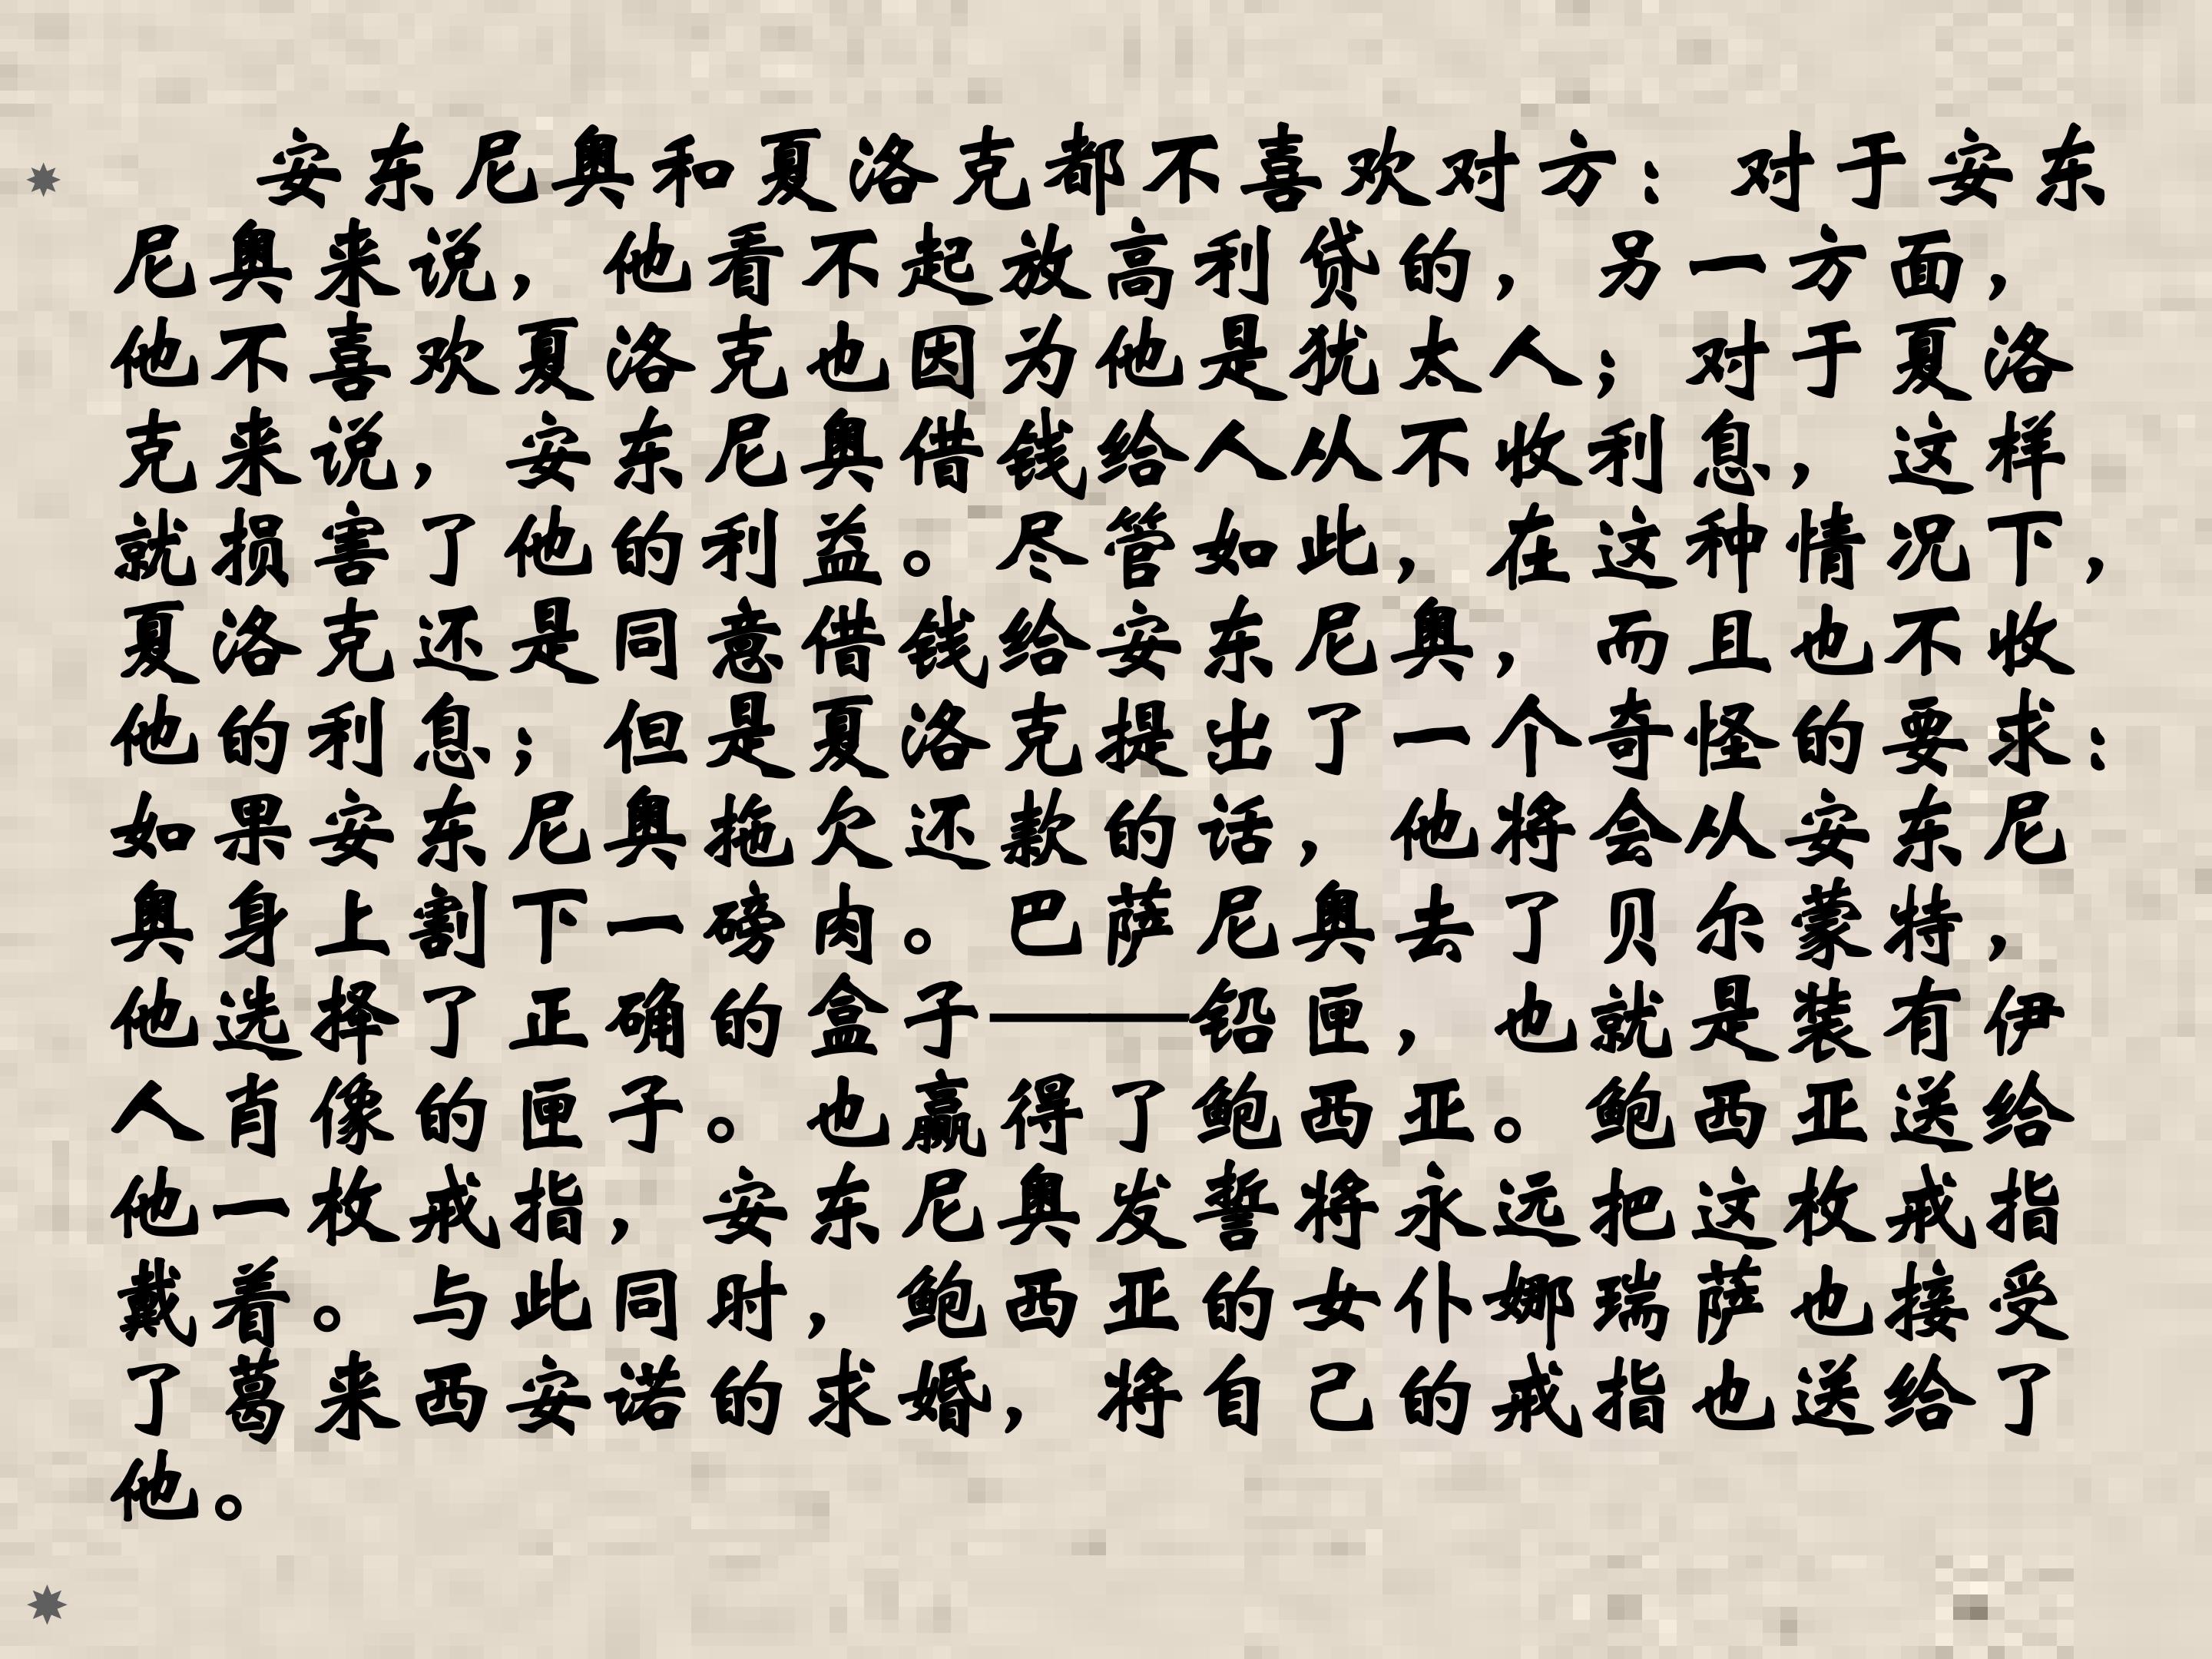 安东尼奥和夏洛克都不喜欢对方：对于安东
尼奥来说，他看不起放高利贷的，另一方面，
他不喜欢夏洛克也因为他是犹太人；对于夏洛
克来说，安东尼奥借钱给人从不收利息，这样
就损害了他的利益。尽管如此，在这种情况下，
夏洛克还是同意借钱给安东尼奥，而且也不收
他的利息；但是夏洛克提出了一个奇怪的要求：
如果安东尼奥拖欠还款的话，他将会从安东尼
奥身上割下一磅肉。巴萨尼奥去了贝尔蒙特，
他选择了正确的盒子——铅匣，也就是装有伊
人肖像的匣子。也赢得了鲍西亚。鲍西亚送给
他一枚戒指，安东尼奥发誓将永远把这枚戒指
戴着。与此同时，鲍西亚的女仆娜瑞萨也接受
了葛来西安诺的求婚，将自己的戒指也送给了
他。